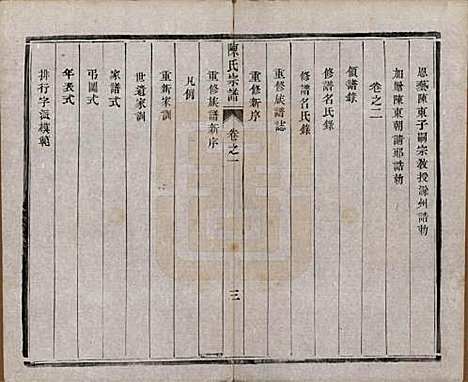 恩蔭陳東子嗣宗教授滁州誥勅
加贈陳東朝請郎誥勅
卷之二
領譜錄
修譜名氏錄
修譜名氏錄
重修族譜誌
重修新序
陳氏宗譜 卷之一 三
重修族譜新序
凡例
重新家訓
世遺家訓
家譜式
弔圖式
年表式
排行字派模範